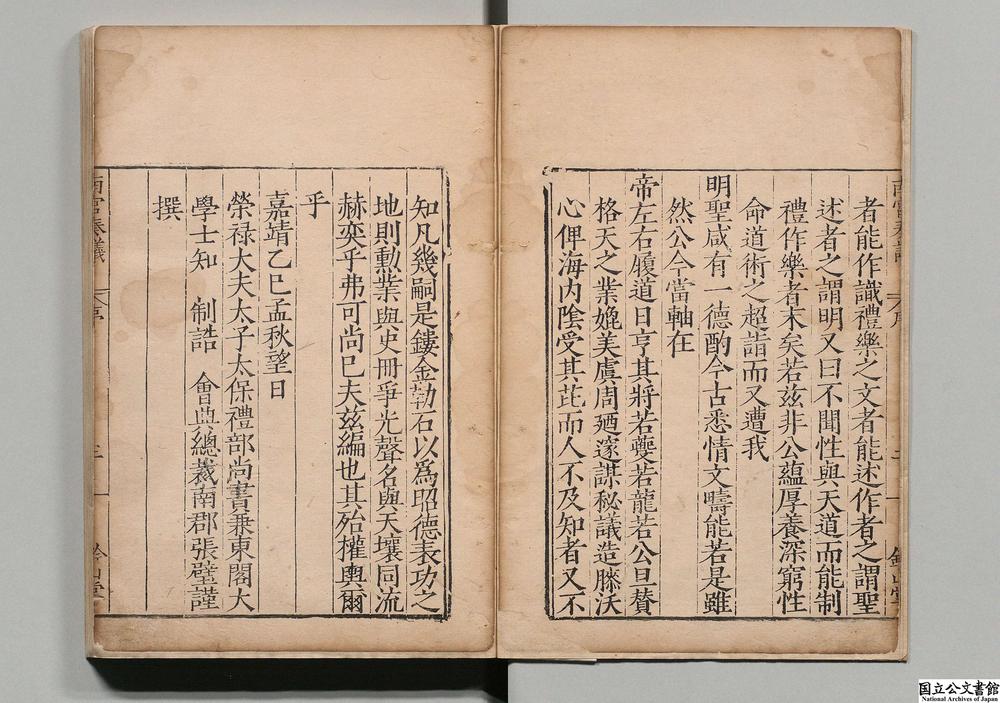 者能作識禮樂之文者能述作者之謂聖
述者之謂明又曰不聞性與天道而能制
禮作樂者末矣若茲非公蘊厚養深窮性
命道術之超詣而又遭我
明聖咸有一德酌今古悉情文疇能若是雖
然公今當軸在
帝左右履道日亨其將若夔若龍若公旦贊
格天之業媲美虞周廼邃謀秘議造膝沃
心俾海内陰受其芘而人不及知者又不
知凡幾嗣是鏤金勒石以爲昭德表功之
地則勳業與史冊爭光聲名與天壤同流
赫奕乎弗可尚已夫茲編也其殆權輿爾
乎
嘉靖乙巳孟秋望日
榮祿大夫太子太保禮部尚書兼東閣大
學士知 制誥 會典總裁南郡張璧謹
撰
南宮奏議
序
三
鈐山堂
国立公文書館
National Archives of Japan